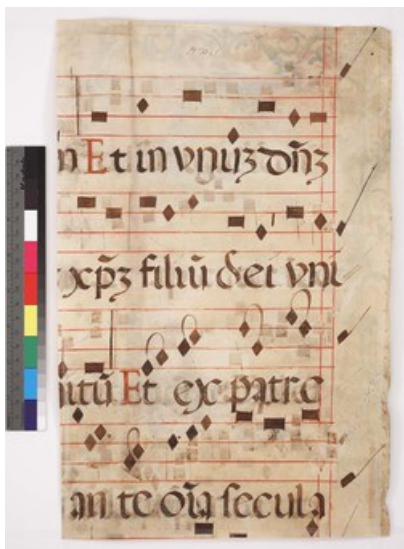 n Et in vniuʒ dn̄ʒ
xp̄ʒ filiū dei vni
nitū Et ex patre
an te oīa secula